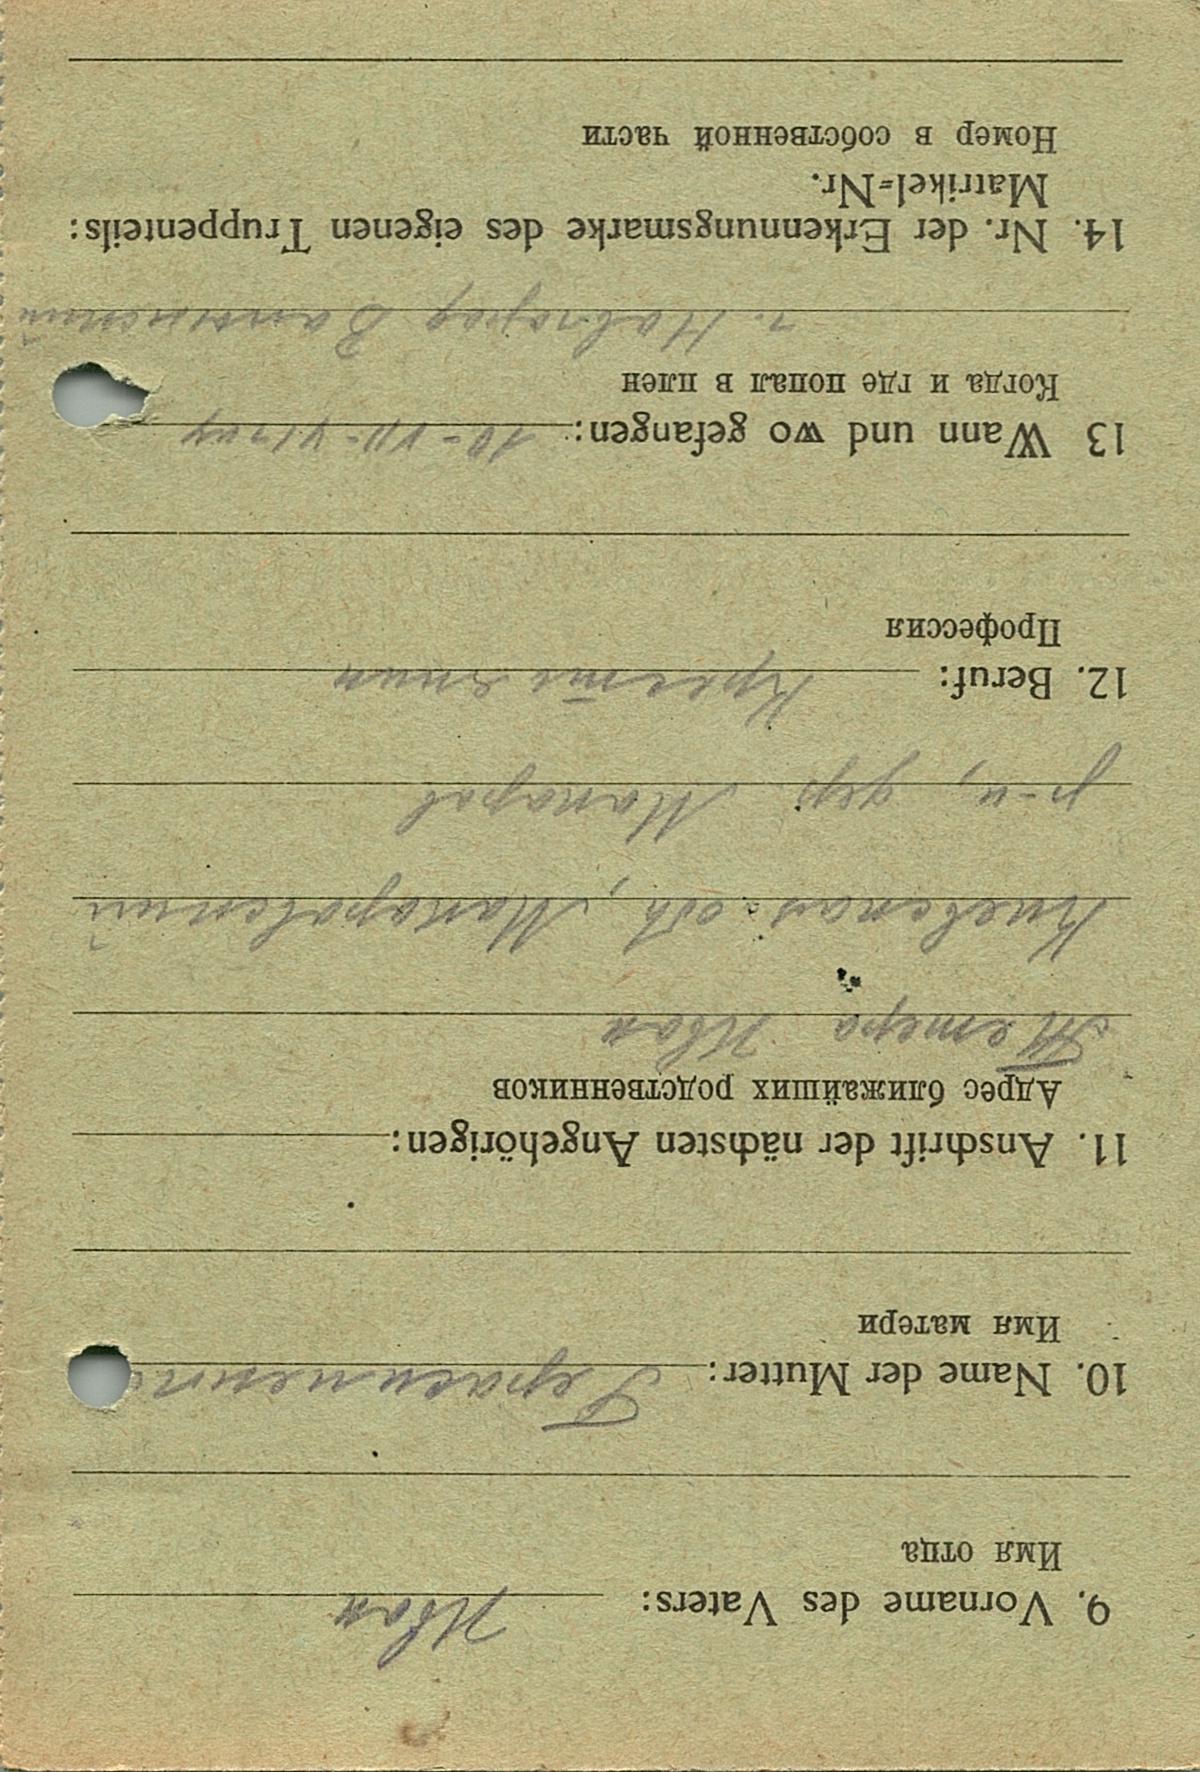 9. Vorname des Vaters: Иван
Имя отца
10. Name der Mutter: Герасименко
Имя матери
11. Anschrift der nächsten Angehörigen:
Адрес ближайших родственников
Тетера Иван
Киевская обл, Макаровский
р-н, дер. Макаров
12. Beruf:
Профессия
13 Wann und wo gefangen: 10-VII-
Когда и где попал в плен
г.
14. Nr. der Erkennungsmarke des eigenen Truppenteils:
Matrikel=Nr.
Номер в собственной части